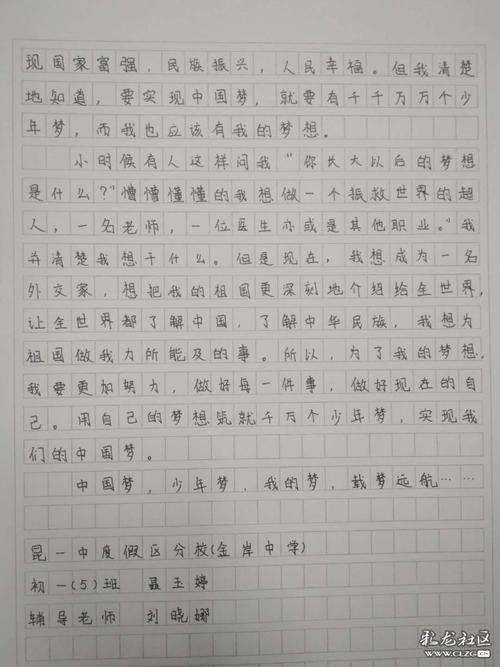 现国家富强，民族振兴，人民幸福。但我清楚
地知道，要实现中国梦，就要有千千万万个少
年梦，而我也应该有我的梦想。
小时候有人这样问我“你长大以后的梦想
是什么？”懵懵懂懂的我想做一个振救世界的超
人，一名老师，一位医生亦或是其他职业。”我
并清楚我想干什么。但是现在，我想成为一名
外交家，想把我的祖国更深刻地介绍给全世界，
让全世界都了解中国，了解中华民族，我想为
祖国做我力所能及的事。所以，为了我的梦想，
我要更加努力，做好每一件事，做好现在的自
己。用自己的梦想筑就千万个少年梦，实现我
们的中国梦。
中国梦，少年梦，我的梦，载梦远航……
昆一中度假区分校(金岸中学)
初一(5)班 聂玉婷
辅导老师 刘晓娜
彩龙社区
WWW.CLZG.CN